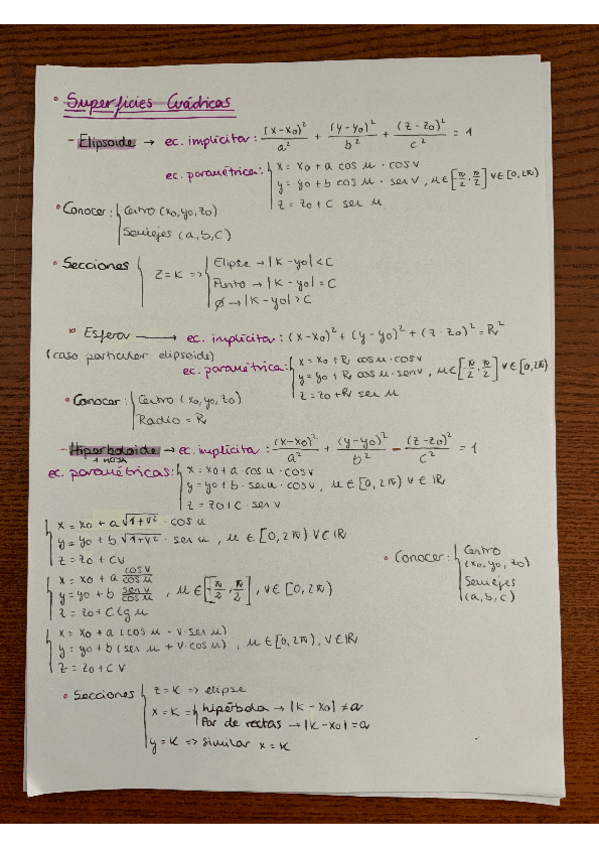 • Superficies Cuádricas
- Elipsoide → ec. implícita: (x-x0)²/a² + (y-y0)²/b² + (z-z0)²/c² = 1
ec. paramétrica: { x = x0 + a cos u · cos v
y = y0 + b cos u · sen v, u ∈ [-π/2, π/2] v ∈ [0, 2π)
z = z0 + c sen u
• Conocer: { Centro (x0, y0, z0)
Semiejes (a, b, c)
• Secciones { z = K => { Elipse → |K - y0| < C
Punto → |K - y0| = C
Ø → |K - y0| > C
Esfera → ec. implícita: (x-x0)² + (y-y0)² + (z-z0)² = R²
(caso particular elipsoide)
ec. paramétrica: { x = x0 + R cos u · cos v
y = y0 + R cos u · sen v, u ∈ [-π/2, π/2] v ∈ [0, 2π)
z = z0 + R sen u
• Conocer: { Centro (x0, y0, z0)
Radio = R
- Hiperboloide → ec. implícita: (x-x0)²/a² + (y-y0)²/b² - (z-z0)²/c² = 1
1 hoja
ec. paramétricas: { x = x0 + a · cos u · cos v
y = y0 + b · sen u · cos v, u ∈ [0, 2π) v ∈ R
z = z0 + C · sen v
{ x = x0 + a √1+v² · cos u
y = y0 + b √1+v² · sen u, u ∈ [0, 2π) v ∈ R
z = z0 + cv
• Conocer: { Centro (x0, y0, z0)
Semiejes (a, b, c)
{ x = x0 + a cos v / cos u
y = y0 + b sen v / cos u, u ∈ [-π/2, π/2], v ∈ [0, 2π)
z = z0 + c tg u
{ x = x0 + a (cos u - v · sen u)
y = y0 + b (sen u + v · cos u), u ∈ [0, 2π), v ∈ R
z = z0 + c v
• Secciones { z = K => elipse
x = K => { hipérbola → |K - x0| ≠ a
Par de rectas → |K - x0| = a
y = K => similar x = K